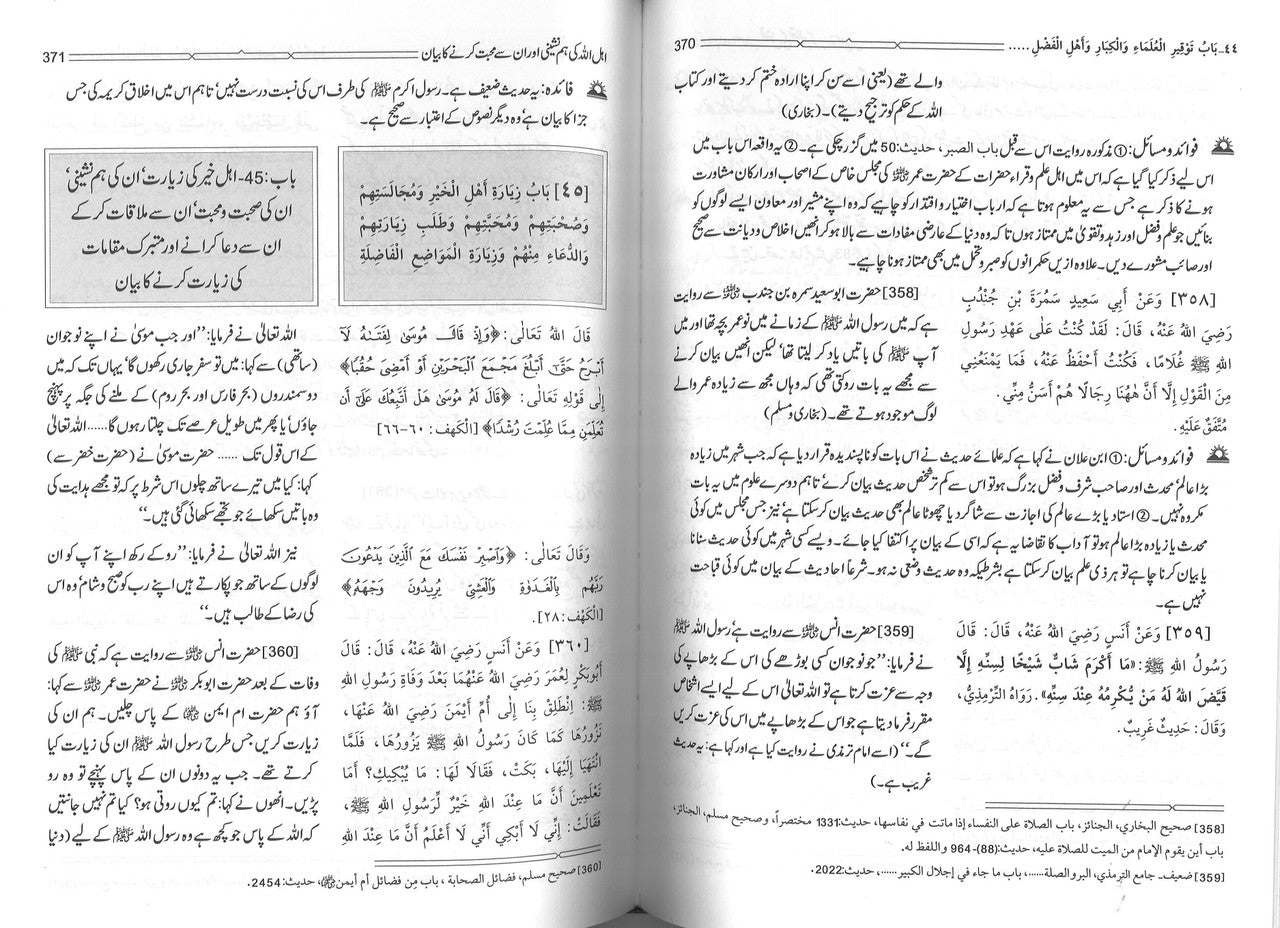 ٤٤-بَابُ تَوْقِيرِ الْعُلَمَاءِ وَالْكِبَارِ وَأَهْلِ الْفَضْلِ ..... 370
والے تھے (یعنی اسے سن کر اپنا ارادہ ختم کر دیتے اور کتاب
اللہ کے حکم کو ترجیح دیتے)۔ (بخاری)
فوائد و مسائل: ① مذکورہ روایت اس سے قبل باب الصبر، حدیث:50 میں گزر چکی ہے۔ ② یہ واقعہ اس باب میں
اس لیے ذکر کیا گیا ہے کہ اس میں اہل علم و قراء حضرات کے حضرت عمر رضی اللہ عنہ کی مجلس خاص کے اصحاب اور ارکان مشاورت
ہونے کا ذکر ہے جس سے یہ معلوم ہوتا ہے کہ ارباب اختیار و اقتدار کو چاہیے کہ وہ اپنے مشیر اور معاون ایسے لوگوں کو
بنائیں جو علم و فضل اور زہد و تقویٰ میں ممتاز ہوں تاکہ وہ دنیا کے عارضی مفادات سے بالا ہو کر انھیں اخلاص و دیانت سے صحیح
اور صائب مشورے دیں۔ علاوہ ازیں حکمرانوں کو صبر و تحمل میں بھی ممتاز ہونا چاہیے۔
[٣٥٨] وَعَنْ أَبِي سَعِيدٍ سَمُرَةَ بْنِ جُنْدُبٍ
رَضِيَ اللهُ عَنْهُ، قَالَ: لَقَدْ كُنْتُ عَلَى عَهْدِ رَسُولِ
اللهِ ﷺ غُلَامًا، فَكُنْتُ أَحْفَظُ عَنْهُ، فَمَا يَمْنَعُنِي
مِنَ الْقَوْلِ إِلَّا أَنَّ هٰهُنَا رِجَالًا هُمْ أَسَنُّ مِنِّي.
مُتَّفَقٌ عَلَيْهِ.
[358] حضرت ابو سعید سمرہ بن جندب رضی اللہ عنہ سے روایت
ہے کہ میں رسول اللہ ﷺ کے زمانے میں نوعمر بچہ تھا اور میں
آپ ﷺ کی باتیں یاد کر لیتا تھا‘ لیکن انھیں بیان کرنے
سے مجھے یہ بات روکتی تھی کہ وہاں مجھ سے زیادہ عمر والے
لوگ موجود ہوتے تھے۔ (بخاری و مسلم)
فوائد و مسائل: ① ابن علان نے کہا ہے کہ علمائے حدیث نے اس بات کو ناپسندیدہ قرار دیا ہے کہ جب شہر میں زیادہ
بڑا عالم‘ محدث اور صاحب شرف و فضل بزرگ ہو تو اس سے کم تر شخص حدیث بیان کرے‘ تاہم دوسرے علوم میں یہ بات
مکروہ نہیں۔ ② استاد یا بڑے عالم کی اجازت سے شاگرد یا چھوٹا عالم بھی حدیث بیان کر سکتا ہے‘ نیز جس مجلس میں کوئی
محدث یا زیادہ بڑا عالم ہو تو آداب کا تقاضا یہ ہے کہ اسی کے بیان پر اکتفا کیا جائے۔ ویسے کسی شہر میں کوئی حدیث سنانا
یا بیان کرنا چاہے تو ہر ذی علم بیان کر سکتا ہے بشرطیکہ وہ حدیث وضعی نہ ہو۔ شرعاً احادیث کے بیان میں کوئی قباحت
نہیں ہے۔
[٣٥٩] وَعَنْ أَنَسٍ رَضِيَ اللهُ عَنْهُ، قَالَ: قَالَ
رَسُولُ اللهِ ﷺ: «مَا أَكْرَمَ شَابٌّ شَيْخًا لِسِنِّهِ إِلَّا
قَيَّضَ اللهُ لَهُ مَنْ يُكْرِمُهُ عِنْدَ سِنِّهِ». رَوَاهُ التِّرْمِذِيُّ،
وَقَالَ: حَدِيثٌ غَرِيبٌ.
[359] حضرت انس رضی اللہ عنہ سے روایت ہے‘ رسول اللہ ﷺ
نے فرمایا: ”جو نوجوان کسی بوڑھے کی اس کے بڑھاپے کی
وجہ سے عزت کرتا ہے تو اللہ تعالیٰ اس کے لیے ایسے اشخاص
مقرر فرما دیتا ہے جو اس کے بڑھاپے میں اس کی عزت کریں
گے۔“ (اسے امام ترمذی نے روایت کیا ہے اور کہا ہے: یہ حدیث
غریب ہے۔)
[358] صحيح البخاري، الجنائز، باب الصلاة على النفساء إذا ماتت في نفاسها، حديث:1331 مختصراً، وصحيح مسلم، الجنائز،
باب أين يقوم الإمام من الميت للصلاة عليه، حديث:(88)-964 واللفظ له.
[359] ضعيف- جامع الترمذي، البر والصلة......، باب ما جاء في إجلال الكبير......، حديث:2022.
اہل اللہ کی ہم نشینی اور ان سے محبت کرنے کا بیان 371
فائدہ: یہ حدیث ضعیف ہے۔ رسول اکرم ﷺ کی طرف اس کی نسبت درست نہیں‘ تاہم اس میں اخلاق کریمہ کی جس
جزا کا بیان ہے‘ وہ دیگر نصوص کے اعتبار سے صحیح ہے۔
[٤٥] بَابُ زِيَارَةِ أَهْلِ الْخَيْرِ وَمُجَالَسَتِهِمْ
وَصُحْبَتِهِمْ وَمَحَبَّتِهِمْ وَطَلَبِ زِيَارَتِهِمْ
وَالدُّعَاءِ مِنْهُمْ وَزِيَارَةِ الْمَوَاضِعِ الْفَاضِلَةِ
باب:45- اہل خیر کی زیارت‘ ان کی ہم نشینی‘
ان کی صحبت و محبت‘ ان سے ملاقات کر کے
ان سے دعا کرانے اور متبرک مقامات
کی زیارت کرنے کا بیان
قَالَ اللهُ تَعَالَى: ﴿وَإِذْ قَالَ مُوسَىٰ لِفَتَىٰهُ لَآ
أَبْرَحُ حَتَّىٰٓ أَبْلُغَ مَجْمَعَ ٱلْبَحْرَيْنِ أَوْ أَمْضِىَ حُقُبًا﴾
إِلَى قَوْلِهِ تَعَالَى: ﴿قَالَ لَهُۥ مُوسَىٰ هَلْ أَتَّبِعُكَ عَلَىٰٓ أَن
تُعَلِّمَنِ مِمَّا عُلِّمْتَ رُشْدًا﴾ [الْكَهف: ٦٠-٦٦]
اللہ تعالیٰ نے فرمایا: ”اور جب موسیٰ نے اپنے نوجوان
(ساتھی) سے کہا: میں تو سفر جاری رکھوں گا‘ یہاں تک کہ میں
دو سمندروں (بحر فارس اور بحر روم) کے ملنے کی جگہ پر پہنچ
جاؤں‘ یا پھر میں طویل عرصے تک چلتا رہوں گا...... اللہ تعالیٰ
کے اس قول تک ...... حضرت موسیٰ نے (حضرت خضر سے)
کہا: کیا میں تیرے ساتھ چلوں اس شرط پر کہ تو مجھے ہدایت کی
وہ باتیں سکھائے جو تجھے سکھائی گئی ہیں۔“
وَقَالَ تَعَالَى: ﴿وَٱصْبِرْ نَفْسَكَ مَعَ ٱلَّذِينَ يَدْعُونَ
رَبَّهُم بِٱلْغَدَوٰةِ وَٱلْعَشِىِّ يُرِيدُونَ وَجْهَهُۥ﴾
[الْكَهْف: ٢٨].
نیز اللہ تعالیٰ نے فرمایا: ”روکے رکھ اپنے آپ کو ان
لوگوں کے ساتھ جو پکارتے ہیں اپنے رب کو صبح و شام‘ وہ اس
کی رضا کے طالب ہیں۔“
[٣٦٠] وَعَنْ أَنَسٍ رَضِيَ اللهُ عَنْهُ، قَالَ: قَالَ
أَبُوبَكْرٍ لِعُمَرَ رَضِيَ اللهُ عَنْهُمَا بَعْدَ وَفَاةِ رَسُولِ اللهِ
ﷺ: إِنْطَلِقْ بِنَا إِلَى أُمِّ أَيْمَنَ رَضِيَ اللهُ عَنْهَا،
نَزُورُهَا كَمَا كَانَ رَسُولُ اللهِ ﷺ يَزُورُهَا، فَلَمَّا
انْتَهَيَا إِلَيْهَا، بَكَتْ، فَقَالَا لَهَا: مَا يُبْكِيكِ؟ أَمَا
تَعْلَمِينَ أَنَّ مَا عِنْدَ اللهِ خَيْرٌ لِّرَسُولِ اللهِ ﷺ،
فَقَالَتْ: إِنِّي لَا أَبْكِي أَنِّي لَا أَعْلَمُ أَنَّ مَا عِنْدَ اللهِ
[360] حضرت انس رضی اللہ عنہ سے روایت ہے کہ نبی ﷺ کی
وفات کے بعد حضرت ابوبکر رضی اللہ عنہ نے حضرت عمر رضی اللہ عنہ سے کہا:
آؤ ہم حضرت ام ایمن رضی اللہ عنہا کے پاس چلیں۔ ہم ان کی
زیارت کریں جس طرح رسول اللہ ﷺ ان کی زیارت کیا
کرتے تھے۔ جب یہ دونوں ان کے پاس پہنچے تو وہ رو
پڑیں۔ انھوں نے کہا: تم کیوں روتی ہو؟ کیا تم نہیں جانتیں
کہ اللہ کے پاس جو کچھ ہے وہ رسول اللہ ﷺ کے لیے (دنیا
[360] صحيح مسلم، فضائل الصحابة ، باب من فضائل أم أيمن رضی اللہ عنہا، حديث:2454.